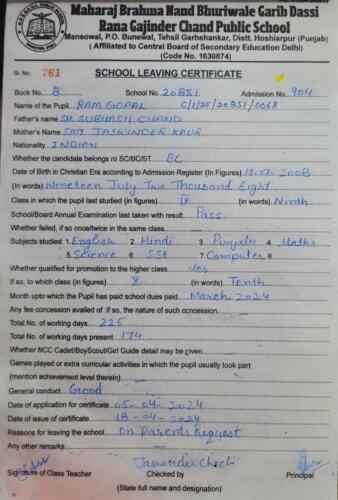 Maharaj Brahma Nand Bhuriwale Garib Dassi
Rana Gajinder Chand Public School
Mansowal, P.O. Bunewal, Tehsil Garhshankar, Distt. Hoshiarpur (Punjab)
( Affiliated to Central Board of Secondary Education Delhi)
(Code No. 1630874)
Sr. No. 761 SCHOOL LEAVING CERTIFICATE
Book No. 8 School No. 20851 Admission No. 904
Name of the Pupil RAM GOPAL C/1/25/20851/0068
Father's name SH. SUBHASH CHAND
Mother's Name SMT. JASWINDER KAUR
Nationality INDIAN
Whether the candidate belongs to SC/BC/ST BC
Date of Birth in Christian Era according to Admission Register (In Figures) 19.07.2008
(In words) Nineteen July Two Thousand Eight
Class in which the pupil last studied (in figures) IX (in words) Ninth
School/Board Annual Examination last taken with result Pass
Whether failed, if so once/twice in the same class
Subjects studied: 1. English 2. Hindi 3. Punjabi 4. Maths
5. Science 6. SSt 7. Computer 8.
Whether qualified for promotion to the higher class Yes
If so, to which class (in figures) X (in words) Tenth
Month upto which the Pupil has paid school dues paid March 2024
Any fee concession availed of :if so, the nature of such cocession
Total No. of working days 225
Total No. of working days present 174
Whether NCC Cadet/BoyScout/Girl Guide detail may be given
Games played or extra curricular activities in which the pupil usually took part
(mention achievement level therein)
General conduct Good
Date of application for certificate 05-04-2024
Date of issue of certificate 18-04-2024
Reasons for leaving the school on Parents Request
Any other remarks
Signature of Class Teacher Checked by Principal
(State full name and designation)